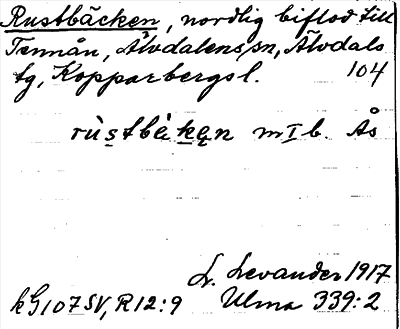 Rustbäcken, nordlig biflod till
Tennån, Älvdalens sn, Älvdals
tg, Kopparbergs l. 104
rùs̲tbèk̲ęn mIb. Ås
L. Levander 1917
kG107SV, R12:9 Ulma 339:2